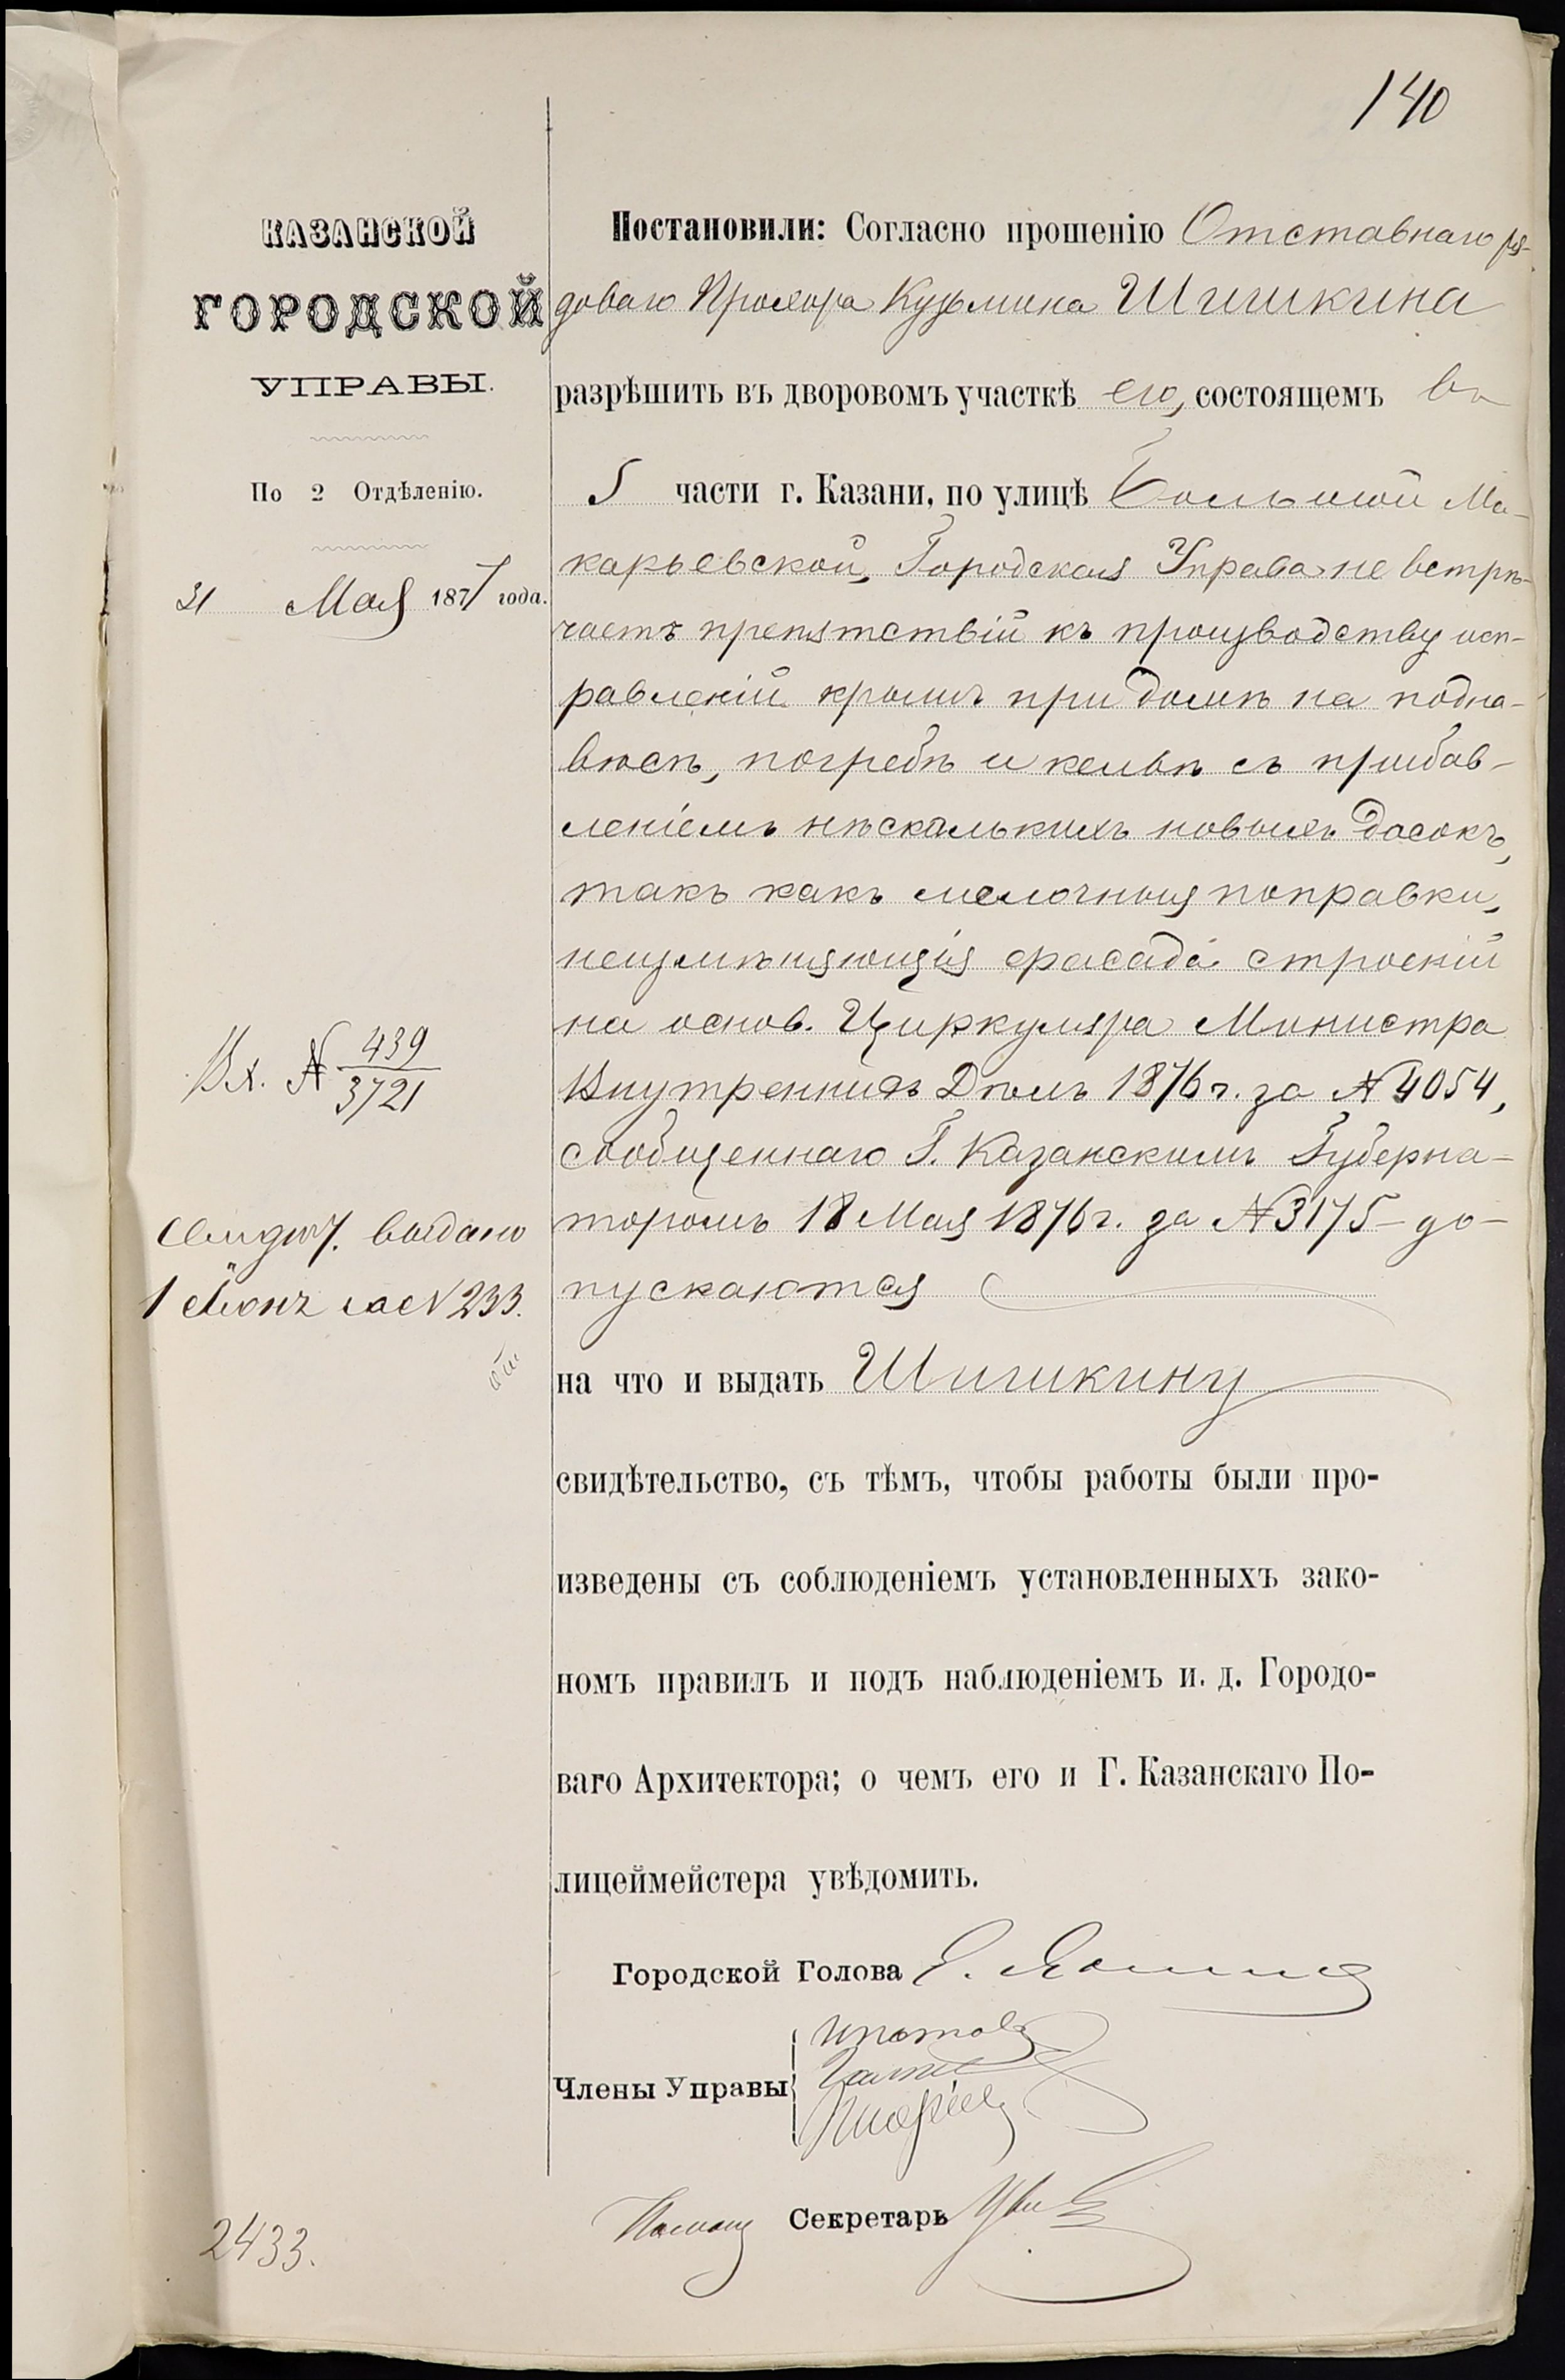 140
КАЗАНСКОЙ
ГОРОДСКОЙ
УПРАВЫ.
По 2 Отдѣленію.
31 Мая 1877 года.
Вх. № 439/3721
Свидѣт. выдано
1 Іюня за № 233.
2433.
Постановили: Согласно прошенію Отставнаго ря-
доваго Прохора Кузьмина Шишкина
разрѣшить въ дворовомъ участкѣ его, состоящемъ въ
5 части г. Казани, по улицѣ Большой Ма-
карьевской, Городская Управа не встрѣ-
чаетъ препятствій къ производству исп-
равленій крышъ при домѣ на подна-
вѣсѣ, погребѣ и кельѣ съ прибав-
леніемъ нѣсколькихъ новыхъ досокъ,
такъ какъ мелочныя поправки,
неизмѣняющія фасада строеній
на основ. Циркуляра Министра
Внутреннихъ Дѣлъ 1876 г. за № 4054,
сообщеннаго Г. Казанскимъ Губерна-
торомъ 18 Мая 1876 г. за № 3175 – до-
пускаются
на что и выдать Шишкину
свидѣтельство, съ тѣмъ, чтобы работы были про-
изведены съ соблюденіемъ установленныхъ зако-
номъ правилъ и подъ наблюденіемъ и. д. Городо-
ваго Архитектора; о чемъ его и Г. Казанскаго По-
лицеймейстера увѣдомить.
Городской Голова
Члены Управы
Ипатов
Помощ Секретарь